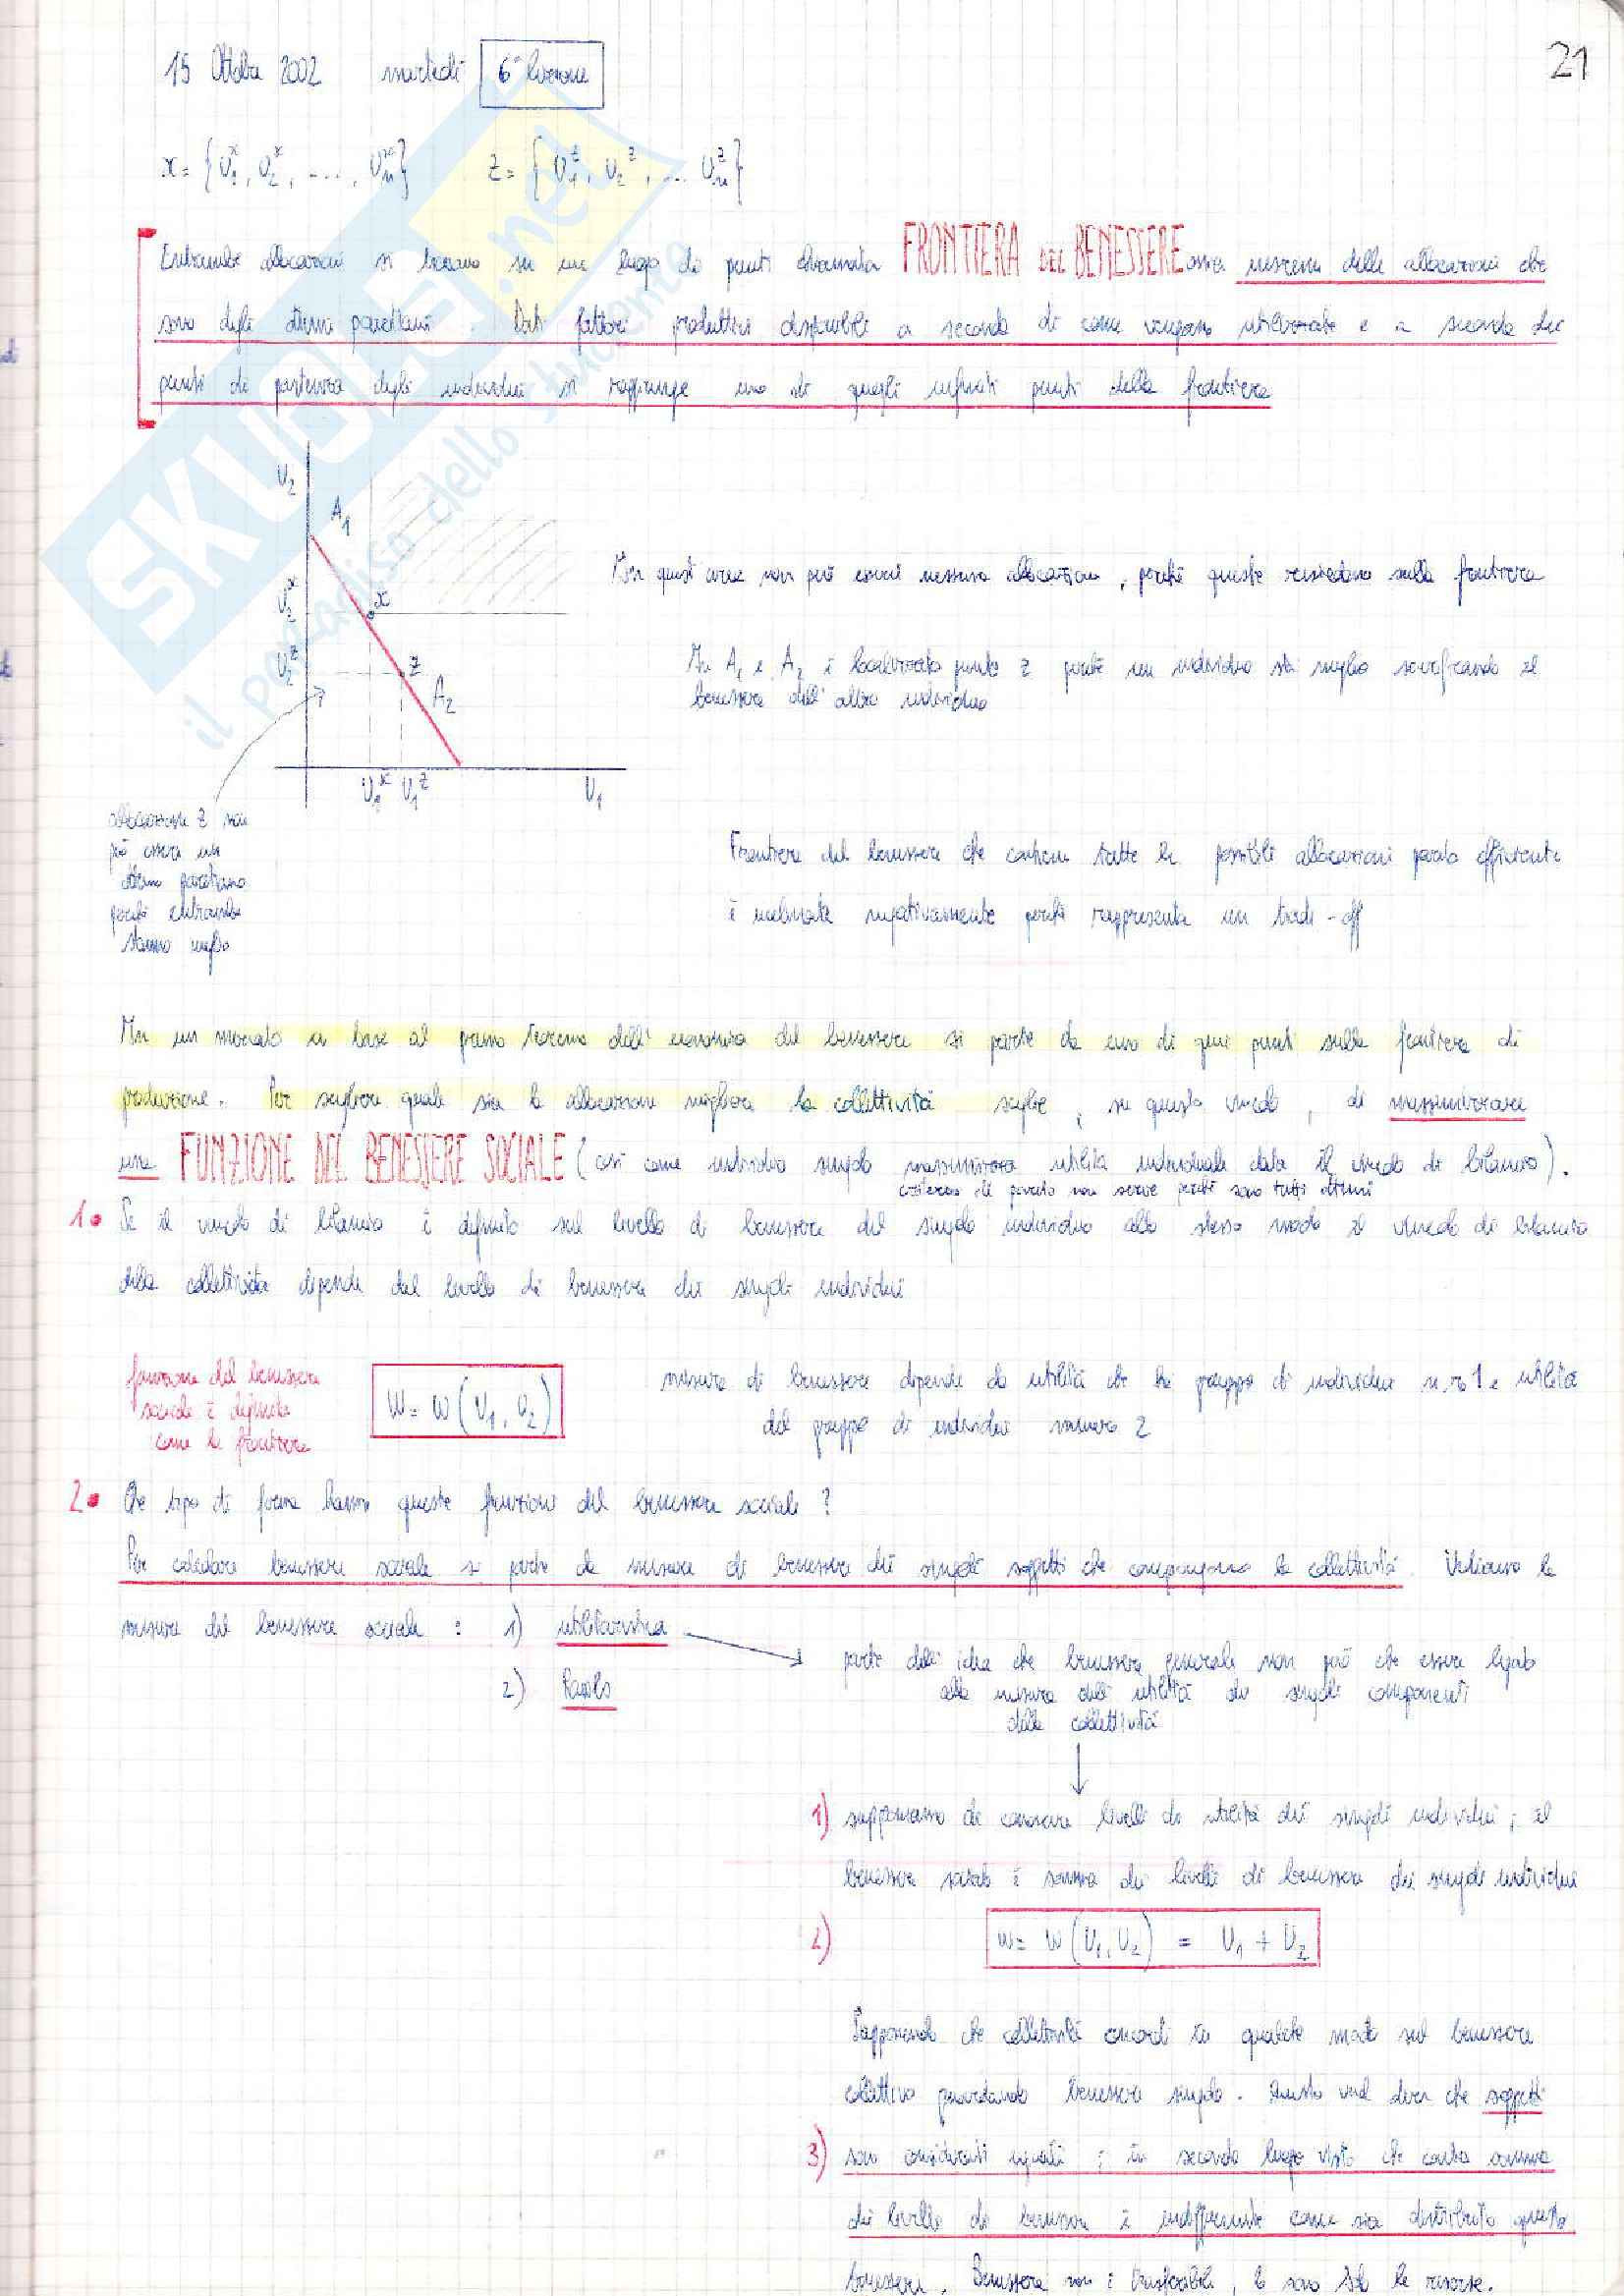 21
15 Ottobre 2002 martedì 6ª lezione
x = { U₁ˣ, U₂ˣ, ...., Uₙˣ } z = { U₁ᶻ, U₂ᶻ, ... Uₙᶻ }
Entrambe allocazioni si trovano su un luogo di punti chiamata FRONTIERA DEL BENESSERE ossia insieme delle allocazioni che
sono degli ottimi paretiani. Dati fattori produttivi disponibili a seconda di come vengono utilizzate e a seconda dei
punti di partenza degli individui si raggiunge uno di quegli infiniti punti della frontiera
U₂
A₁
U₂ˣ x
U₂ᶻ z
A₂
U₁ˣ U₁ᶻ U₁
non può esserci nessuna allocazione, perché queste risiedono sulla frontiera
In A₁ e A₂ è localizzato punto z perché un individuo sta meglio sacrificando il
benessere dell'altro individuo
allocazione z non
può essere un
ottimo paretiano
perché entrambe
stanno meglio
Frontiera del benessere che contiene tutte le possibili allocazioni pareto efficienti
è inclinata negativamente perché rappresenta un trade-off
In un mercato in base al primo teorema dell'economia del benessere si parte da uno di quei punti sulla frontiera di
produzione. Per scegliere quale sia la allocazione migliore la collettività sceglie, su questo vincolo, di massimizzare
una FUNZIONE DEL BENESSERE SOCIALE (così come individuo singolo massimizza utilità individuale data il vincolo di bilancio).
criterio di pareto non serve perché sono tutti ottimi
1. Se il vincolo di bilancio è definito sul livello di benessere del singolo individuo allo stesso modo il vincolo di bilancio
della collettività dipende dal livello di benessere dei singoli individui
funzione del benessere
sociale è definita
come la frontiera
W = W (U₁, U₂)
misura di benessere dipende da utilità che ha gruppo di individui n.ro 1 e utilità
del gruppo di individui numero 2
2. Che tipo di forma hanno queste funzioni del benessere sociale?
Per calcolare benessere sociale si parte da misura di benessere dei singoli soggetti che compongono la collettività. Vediamo le
misure del benessere sociale : 1) utilitaristica
2) Rawls
parte dell'idea che benessere generale non può che essere legato
alla misura dell'utilità dei singoli componenti
della collettività
1) supponiamo di conoscere livelli di utilità dei singoli individui; il
benessere sociale è somma dei livelli di benessere dei singoli individui
2) W = W (U₁, U₂) = U₁ + U₂
Supponendo che collettività concordi in qualche modo sul benessere
collettivo guardando benessere singolo. Questo vuol dire che soggetti
3) sono considerati uguali; in secondo luogo visto che conta somma
dei livelli di benessere è indifferente come sia distribuito questo
benessere. Benessere non è trasferibile, lo sono solo le risorse.
SKUOLA.net
il paradiso dello studente